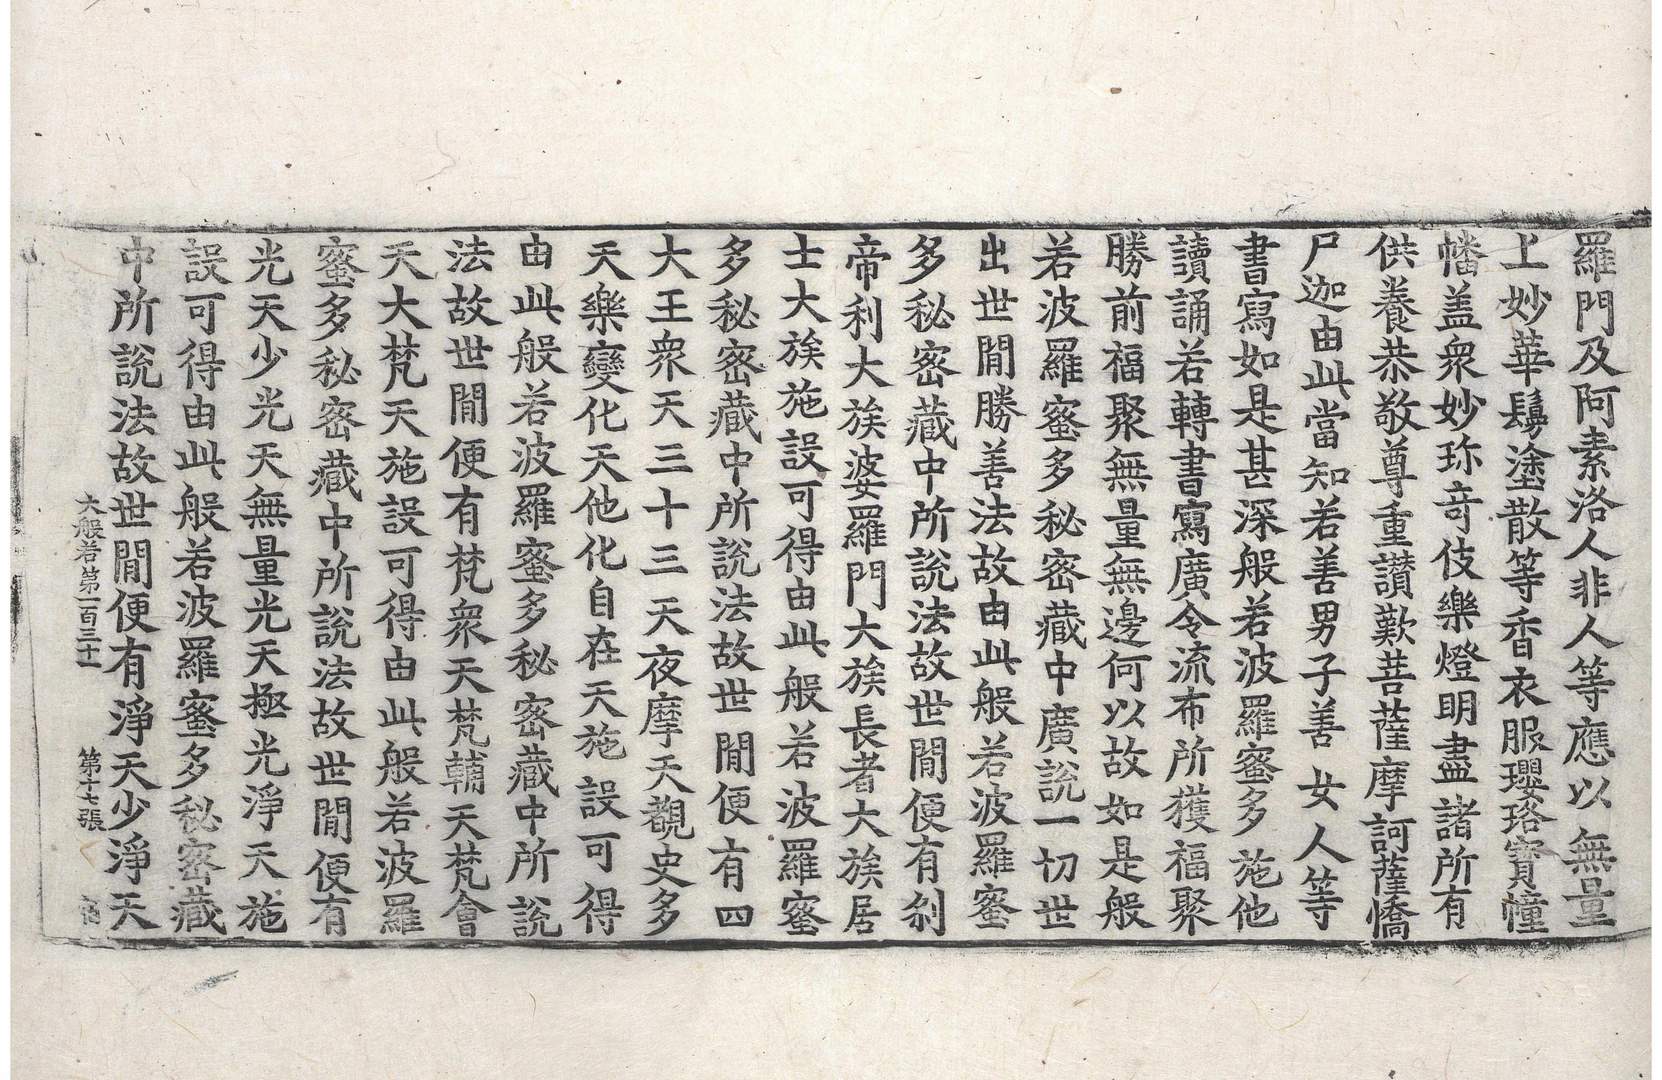 羅門及阿素洛人非人等應以無量
上妙華鬘塗散等香衣服瓔珞寳幢
幡盖衆妙珎竒伎樂燈明盡諸所有
供養恭敬尊重讃歎菩薩摩訶薩憍
尸迦由此當知若善男子善女人等
書寫如是甚深般若波羅蜜多施他
讀誦若轉書寫廣令流布所獲福聚
勝前福聚無量無邊何以故如是般
若波羅蜜多秘密藏中廣說一切世
出世閒勝善法故由此般若波羅蜜
多秘密藏中所說法故世閒便有刹
帝利大族婆羅門大族長者大族居
士大族施設可得由此般若波羅蜜
多秘密藏中所說法故世閒便有四
大王衆天三十三天夜摩天覩史多
天樂變化天他化自在天施設可得
由此般若波羅蜜多秘密藏中所說
法故世閒便有梵衆天梵輔天梵會
天大梵天施設可得由此般若波羅
蜜多秘密藏中所說法故世閒便有
光天少光天無量光天極光淨天施
設可得由此般若波羅蜜多秘密藏
中所說法故世閒便有淨天少淨天
大般若第一百三十一 第十七張